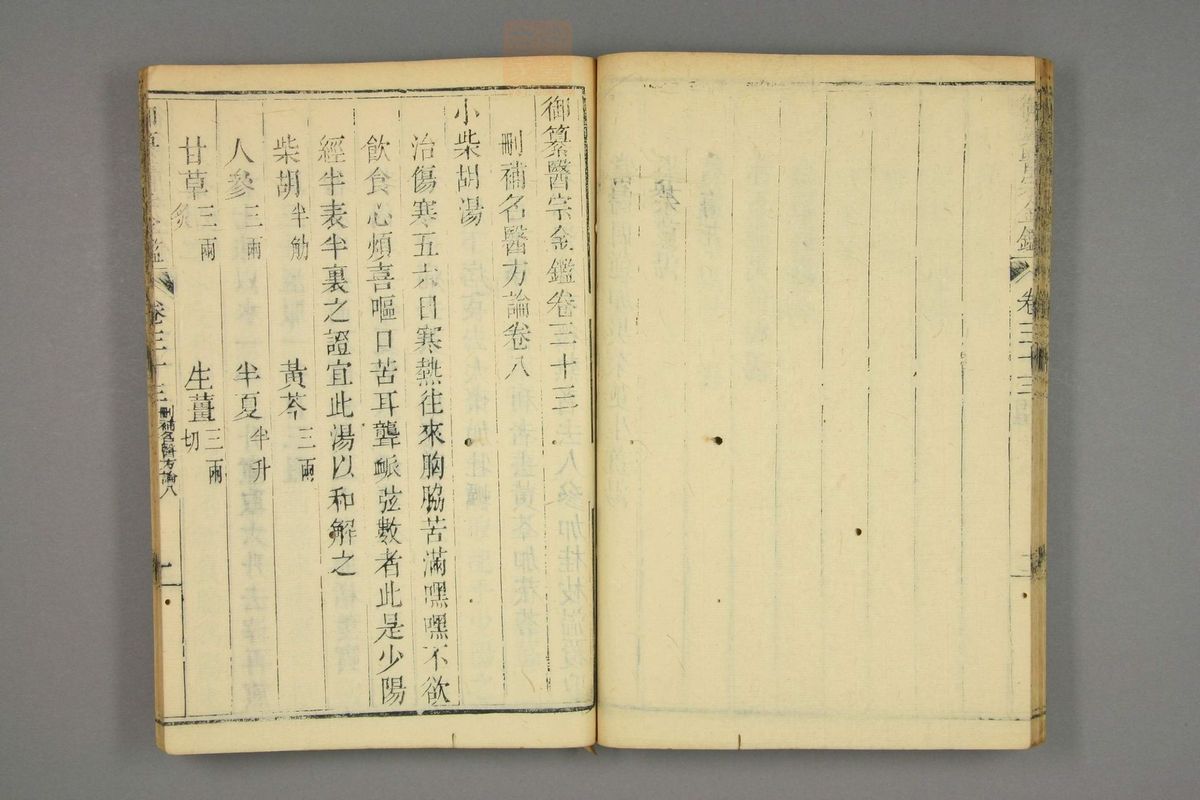 御纂醫宗金鑑卷三十三
刪補名醫方論卷八
小柴胡湯
治傷寒五六日寒熱往來胸脇苦滿嘿嘿不欲
飲食心煩喜嘔口苦耳聾脈弦數者此是少陽
經半表半裏之證宜此湯以和解之
柴胡半觔 黃芩三兩
人參三兩 半夏半升
甘草三兩炙 生薑三兩切
卷三十三 刪補名醫方論八 一
卷三十三